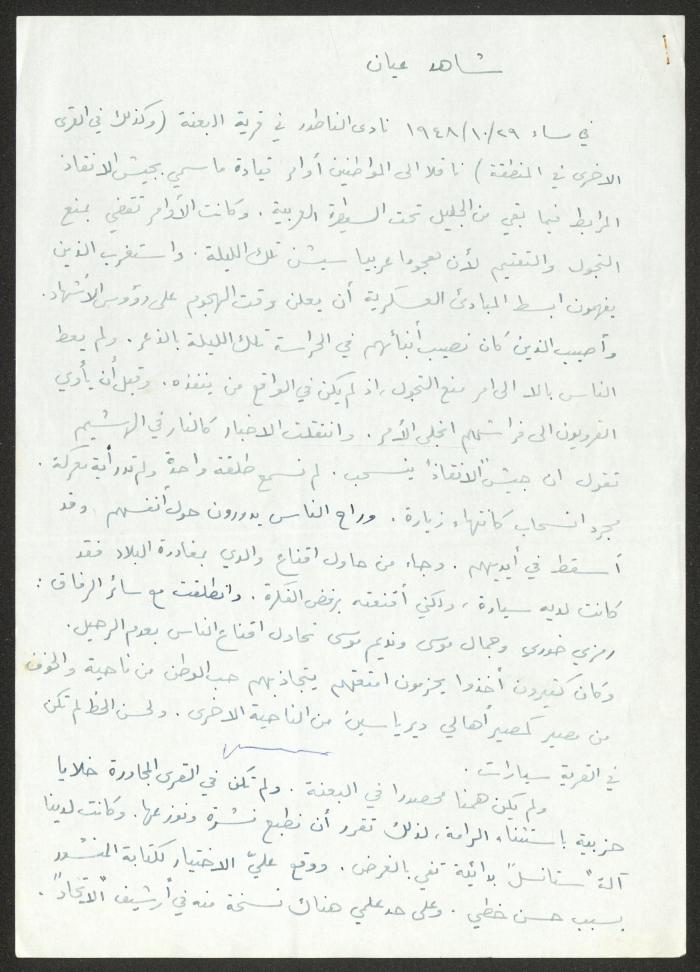 شاهد عيان
في مساء ١٩٤٨/١٠/٢٩ نادى الناطور في قرية البعنة (وكذلك في القرى
الاخرى في المنطقة) ناقلا الى المواطنين أوامر قيادة ما سمي بجيش الانقاذ
المرابط فيما بقي من الجليل تحت السيطرة العربية. وكانت الأوامر تقضي بمنع
التجول والتعتيم لأن هجوما عربيا سيشن تلك الليلة. واستغرب الذين
يفهمون ابسط المبادئ العسكرية أن يعلن وقت الهجوم على رؤوس الأشهاد.
وأصيب الذين كان نصيب أبنائهم في الحراسة تلك الليلة بالذعر. ولم يعط
الناس بالا الى امر منع التجول، اذ لم يكن في الواقع من ينفذه. وقبل أن يأوي
القرويون الى فراشهم انجلى الأمر. وانتقلت الاخبار كالنار في الهشيم
تقول ان جيش "الانقاذ" ينسحب. لم نسمع طلقة واحدة ولم تدر أية معركة.
مجرد انسحاب كانتهاء زيارة. وراح الناس يدورون حول أنفسهم وقد
أسقط في أيديهم. وجاء من حاول اقناع والدي بمغادرة البلاد فقد
كانت لديه سيارة، ولكني أقنعته برفض الفكرة. وانطلقت مع سائر الرفاق:
رمزي خوري وجمال موسى ونديم موسى نحاول اقناع الناس بعدم الرحيل.
وكان كثيرون أخذوا يحزمون امتعتهم يتجاذبهم حب الوطن من ناحية والخوف
من مصير كمصير أهالي دير ياسين من الناحية الاخرى. ولحسن الحظ لم تكن
في القرية سيارات.
ولم يكن همنا محصورا في البعنة. ولم تكن في القرى المجاورة خلايا
حزبية باستثناء الرامة، لذلك تقرر أن نطبع نشرة ونوزعها. وكانت لدينا
آلة "ستانسل" بدائية تفي بالغرض. ووقع عليّ الاختيار لكتابة المنشور
بسبب حسن خطي. وعلى حد علمي هناك نسخة منه في أرشيف "الاتحاد".